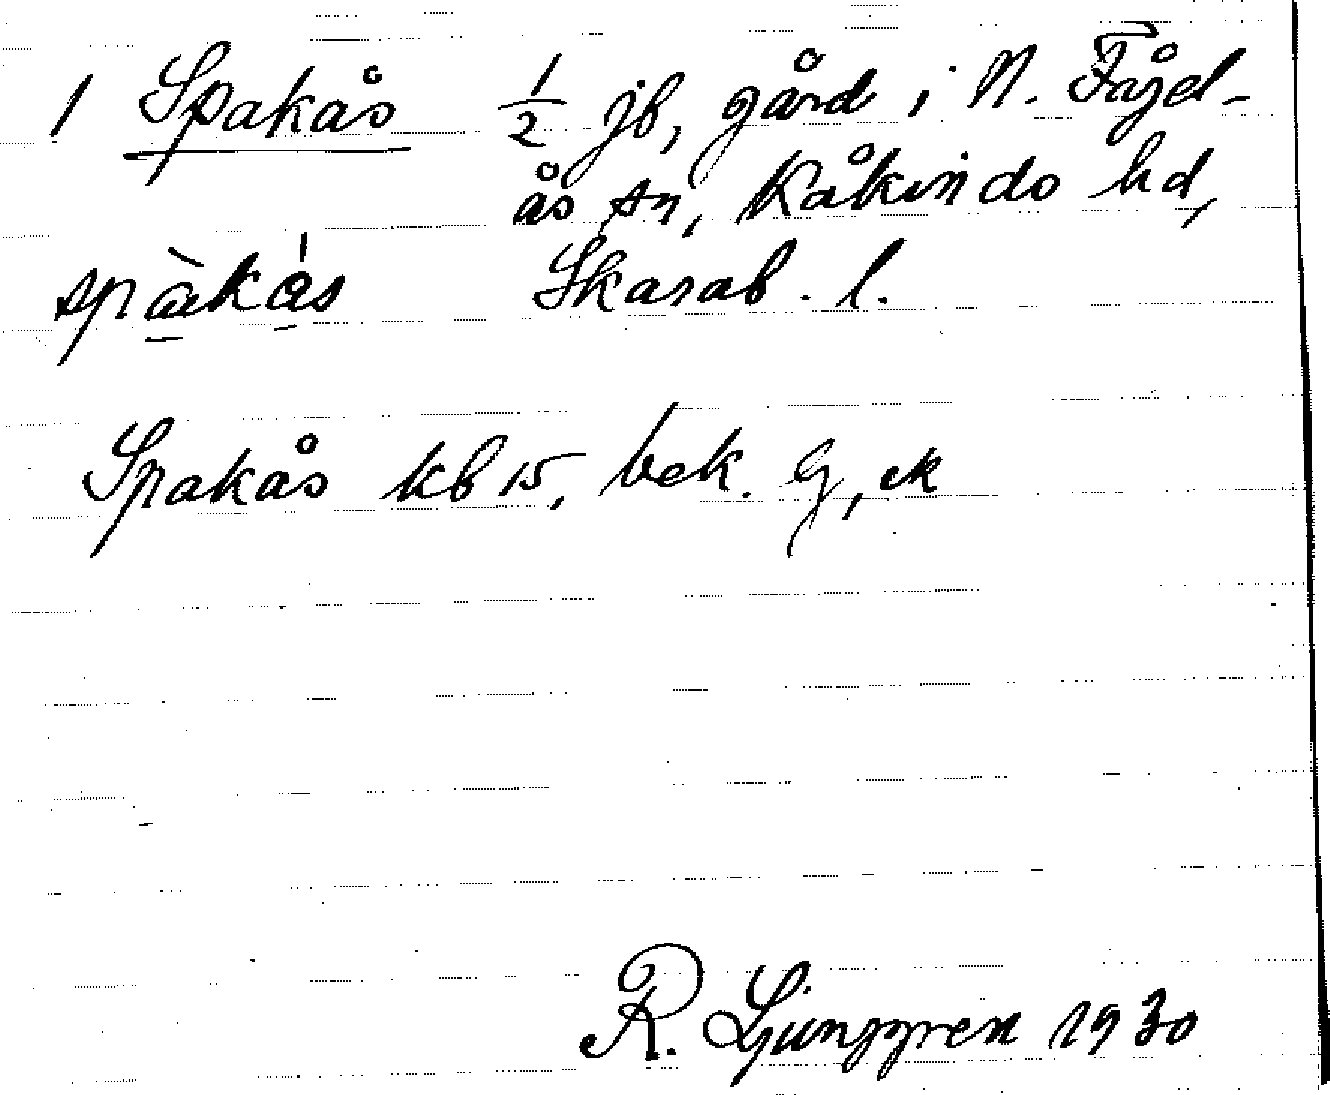 1 Spakås ½ jb, gård i N. Fågel-
ås sn, Kåkinds hd,
spàkás Skarab. l.
Spakås kb 15, bek. G, ek
R. Ljunggren 1930